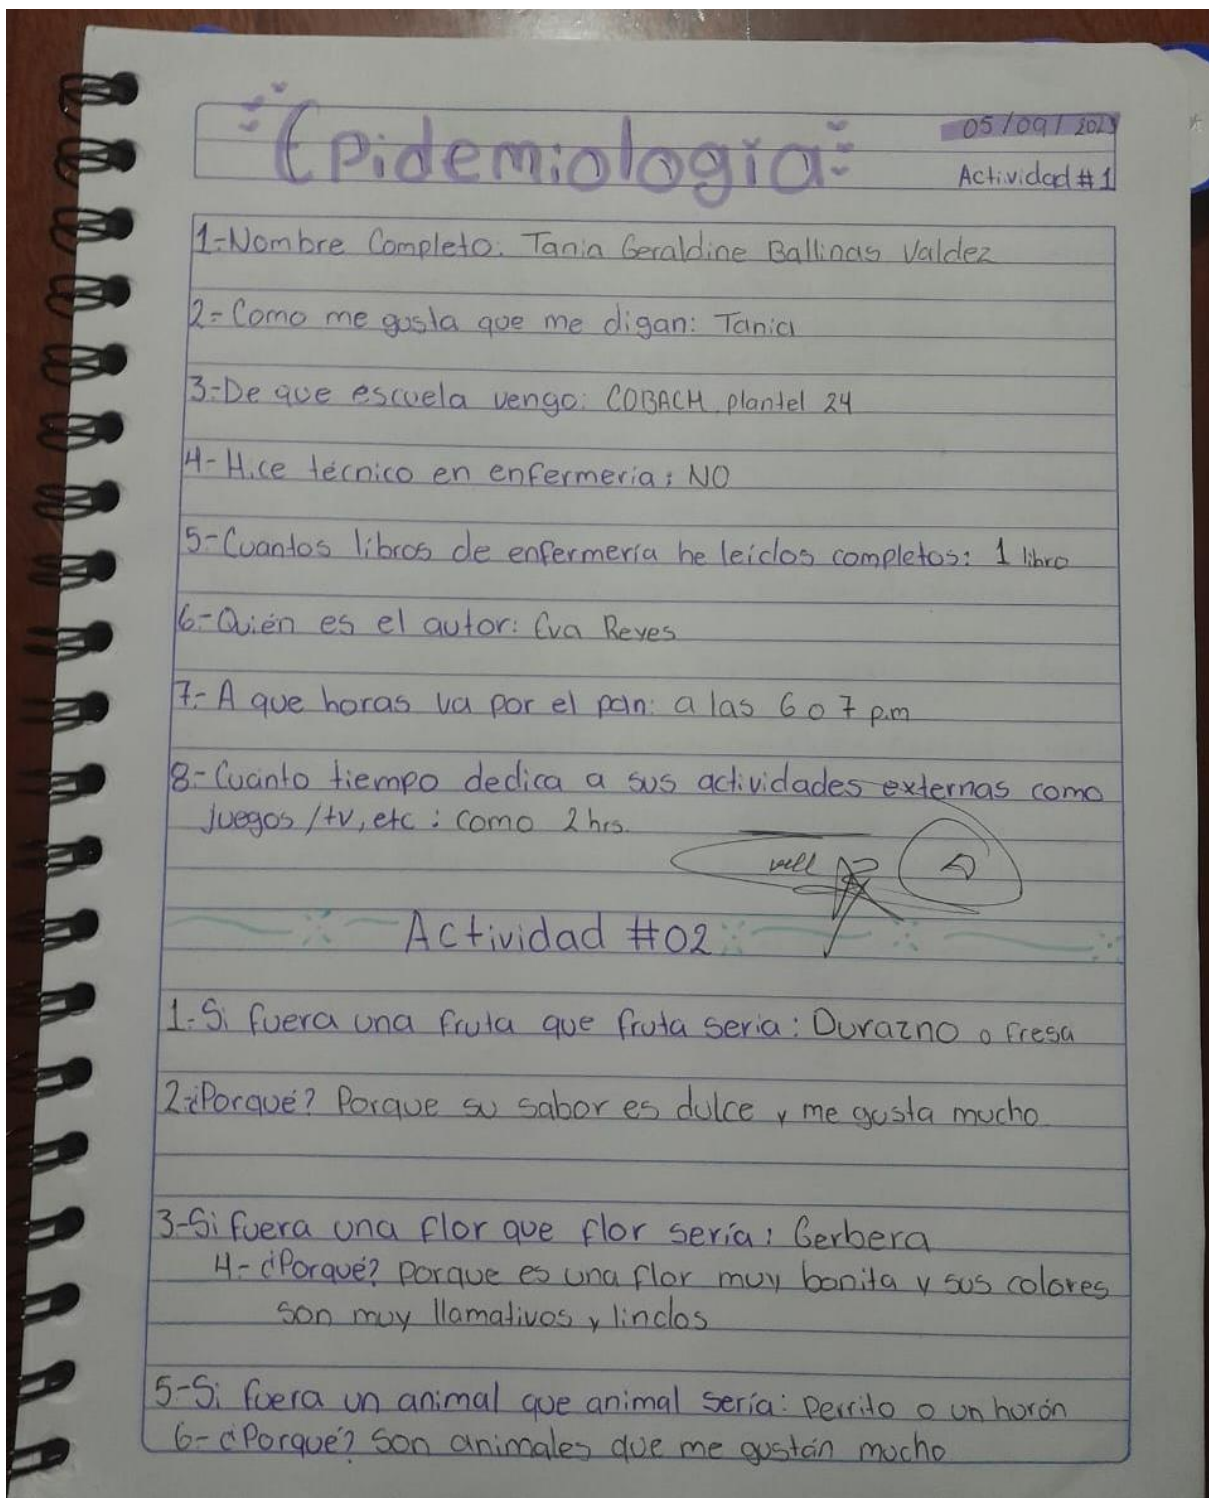 Epidemiología
05/09/2023
Actividad #1
1-Nombre Completo: Tania Geraldine Ballinas Valdez
2-Como me gusta que me digan: Tania
3-De que escuela vengo: COBACH plantel 24
4-Hice técnico en enfermeria: NO
5-Cuantos libros de enfermería he leídos completos: 1 libro
6-Quién es el autor: Eva Reyes
7-A que horas va por el pan: a las 6 o 7 p.m
8-Cuánto tiempo dedica a sus actividades externas como
Juegos/tv, etc: como 2 hrs.
Actividad #02
1-Si fuera una fruta que fruta seria: Durazno o fresa
2-¿Porqué? Porque su sabor es dulce y me gusta mucho
3-Si fuera una flor que flor sería: Gerbera
4-¿Porqué? porque es una flor muy bonita y sus colores
son muy llamativos y lindos
5-Si fuera un animal que animal sería: perrito o un hurón
6-¿Porqué? Son animales que me gustán mucho